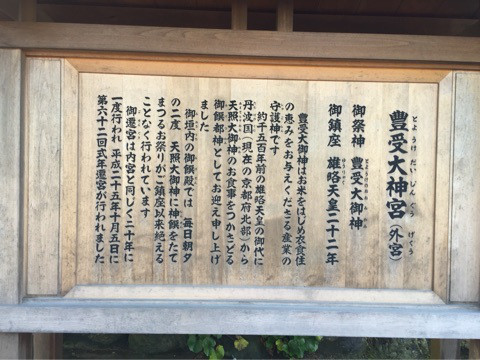 とようけだいじんぐう げくう
豊受大神宮（外宮）
とようけのおおみかみ
御祭神 豊受大御神
御鎮座 雄略天皇二十二年
豊受大御神はお米をはじめ衣食住
の恵みをお与えくださる産業の
守護神です
約千五百年前の雄略天皇の御代に
丹波国（現在の京都府北部）から
天照大御神のお食事をつかさどる
御饌都神としてお迎え申し上げ
ました
御垣内の御饌殿では 毎日朝夕
の二度 天照大御神に神饌をたて
まつるお祭りがご鎮座以来絶える
ことなく行われています
御遷宮は内宮と同じく二十年に
一度行われ 平成二十五年十月五日に
第六十二回式年遷宮が行われました